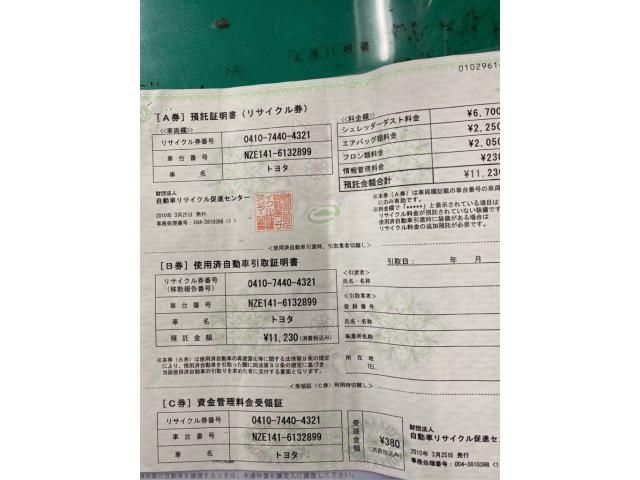 0102961
[A券] 預託証明書 (リサイクル券)
<<車両欄>>
リサイクル券番号 0410-7440-4321
車台番号 NZE141-6132899
車名 トヨタ
<<料金欄>>
シュレッダーダスト料金 ¥6,700
エアバッグ類料金 ¥2,250
フロン類料金 ¥2,050
情報管理料金 ¥230
預託金額合計 ¥11,230
財団法人
自動車リサイクル促進センター
2010年 3月25日 発行
事務処理番号: 004-3810398 (1)
*本券(A券)は車両欄記載の車台番号の車両
にのみ有効です。
*料金欄で「*****」と表示されている項目は
リサイクル料金が預託されていない装備です
自動車引渡時に装備がある場合は
リサイクル料金の追加預託が必要です。
<使用済自動車引渡時、引取業者切離し>
[B券] 使用済自動車引取証明書
リサイクル券番号
(移動報告番号) 0410-7440-4321
車台番号 NZE141-6132899
車名 トヨタ
預託金額 ¥11,230 (消費税込み)
引取日: 年 月
<引渡者>
氏名・名称
<引取業者>
登録番号
氏名・名称
事業所名
所在地
TEL.
*本券(B券)は使用済自動車の再資源化等に関する法律第9条の規定
により、使用済自動車を引取った際に同法第80条の規定に基づき
当該使用済自動車の引取りを求めた者に交付する書面となります。
<受領証(C券)利用時切離し>
[C券] 資金管理料金受領証
リサイクル券番号 0410-7440-4321
車台番号 NZE141-6132899
車名 トヨタ
受領金額 ¥380
(消費税込み)
財団法人
自動車リサイクル促進セン
2010年 3月25日 発行
事務処理番号: 004-3810398 (1)